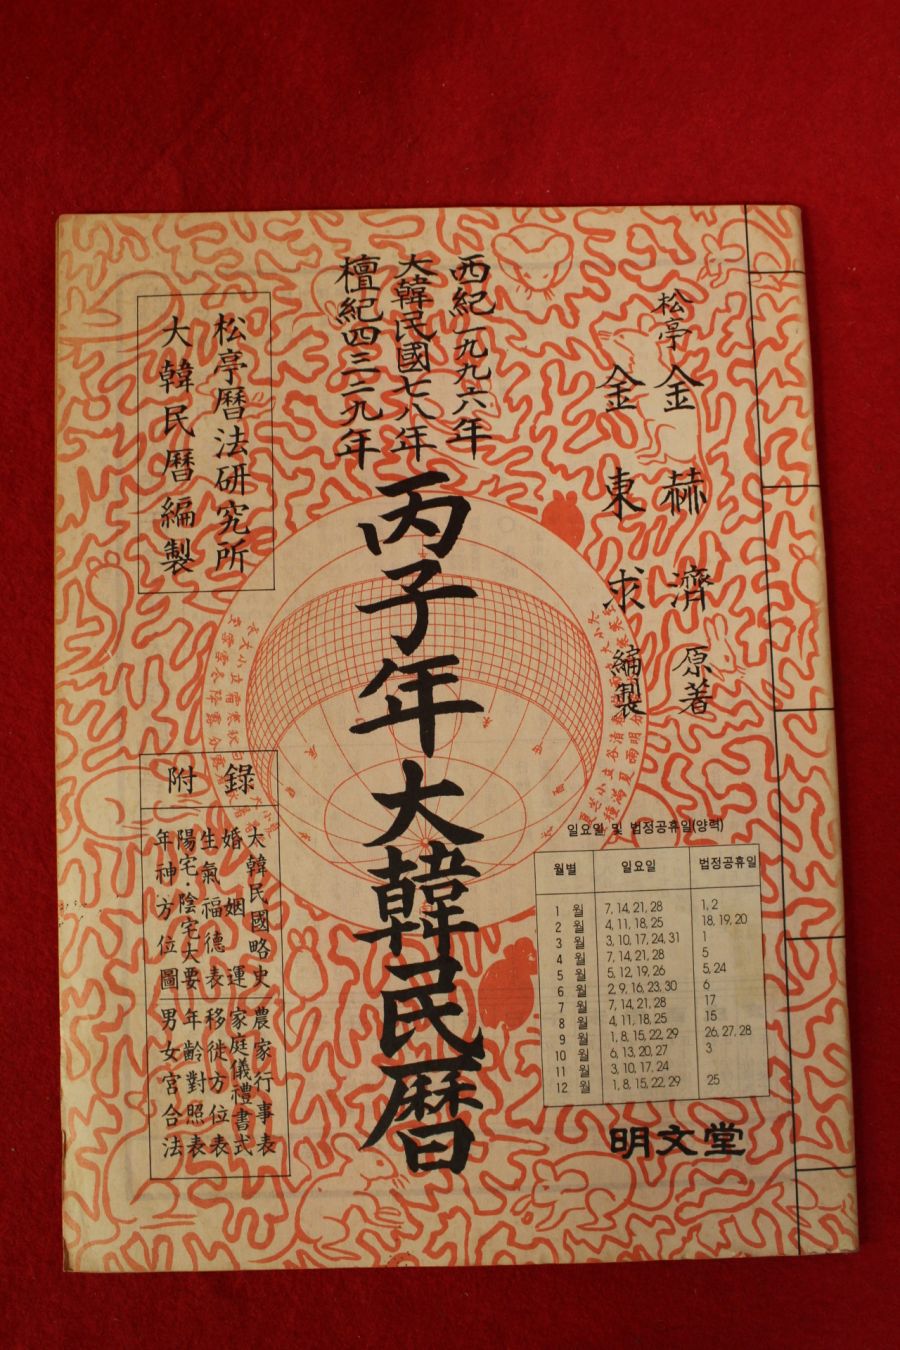 松亭 金赫濟 原著
金東求 編製
西紀一九九六年
大韓民國七八年
檀紀四三二九年
丙子年大韓民曆
松亭曆法硏究所
大韓民曆編製
附錄
大韓民國略史
婚姻運
生氣福德表
陽宅·陰宅大要
年神方位圖
農家行事表
家庭儀禮書式
移徙方位表
年齡對照表
男女宮合法
일요일 및 법정공휴일(양력)
월별 일요일 법정공휴일
1 월 7, 14, 21, 28 1, 2
2 월 4, 11, 18, 25 18, 19, 20
3 월 3, 10, 17, 24, 31 1
4 월 7, 14, 21, 28 5
5 월 5, 12, 19, 26 5, 24
6 월 2, 9, 16, 23, 30 6
7 월 7, 14, 21, 28 17
8 월 4, 11, 18, 25 15
9 월 1, 8, 15, 22, 29 26, 27, 28
10 월 6, 13, 20, 27 3
11 월 3, 10, 17, 24
12 월 1, 8, 15, 22, 29 25
明文堂